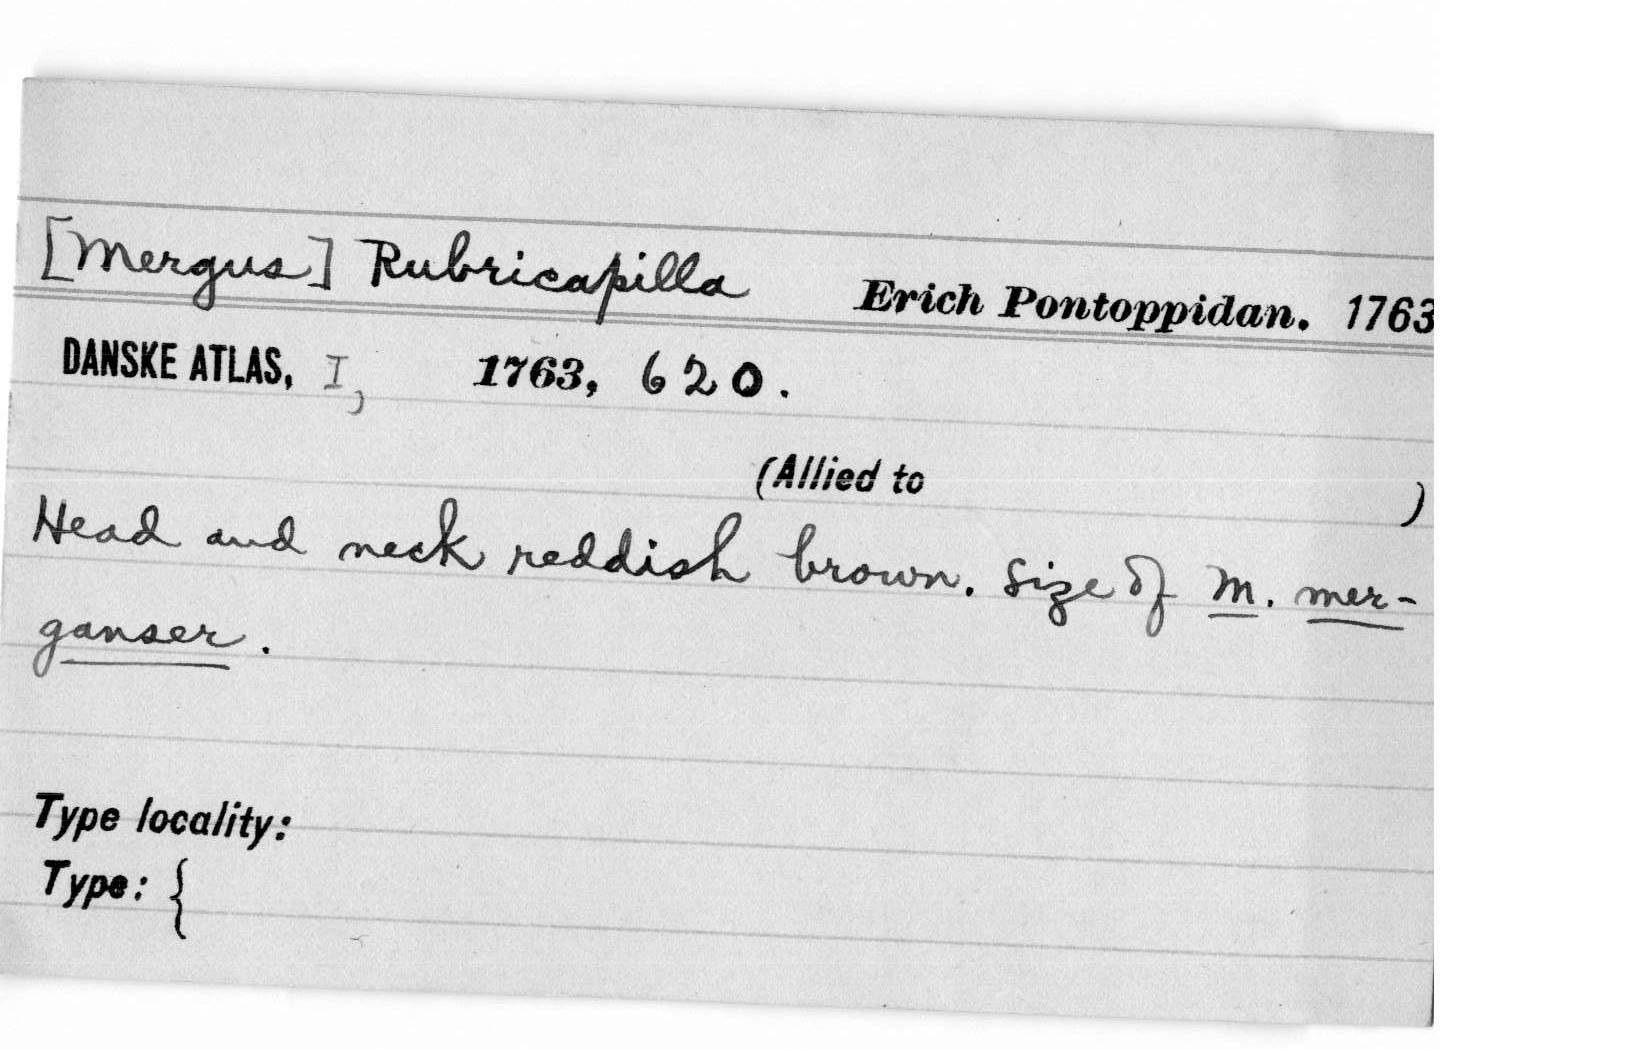 [Mergus] Rubricapilla Erich Pontoppidan. 1763
DANSKE ATLAS, I, 1763, 620.
(Allied to )
Head and neck reddish brown. Size of M. mer-
ganser.
Type locality:
Type: {